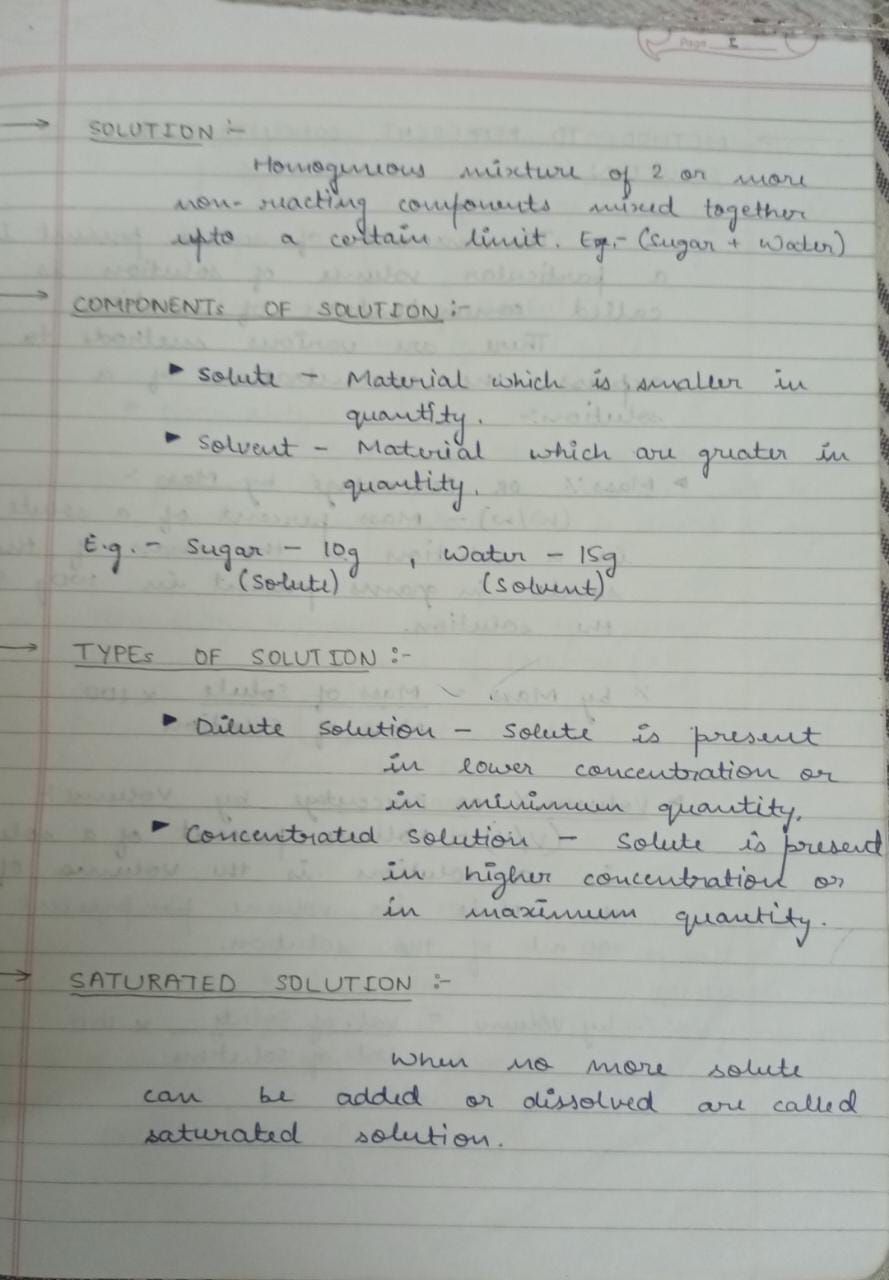 Page 1
→ SOLUTION :-
Homogeneous mixture of 2 or more
non-reacting components mixed together
upto a certain limit. Eg.- (Sugar + Water)
→ COMPONENTs OF SOLUTION :-
▸ Solute - Material which is smaller in
quantity.
▸ Solvent - Material which are greater in
quantity.
E.g. - Sugar - 10g , Water - 15g
(Solute) (Solvent)
→ TYPEs OF SOLUTION :-
▸ Dilute Solution - Solute is present
in lower concentration or
in minimum quantity.
▸ Concentrated Solution - Solute is present
in higher concentration or
in maximum quantity.
→ SATURATED SOLUTION :-
When no more solute
can be added or dissolved are called
saturated solution.